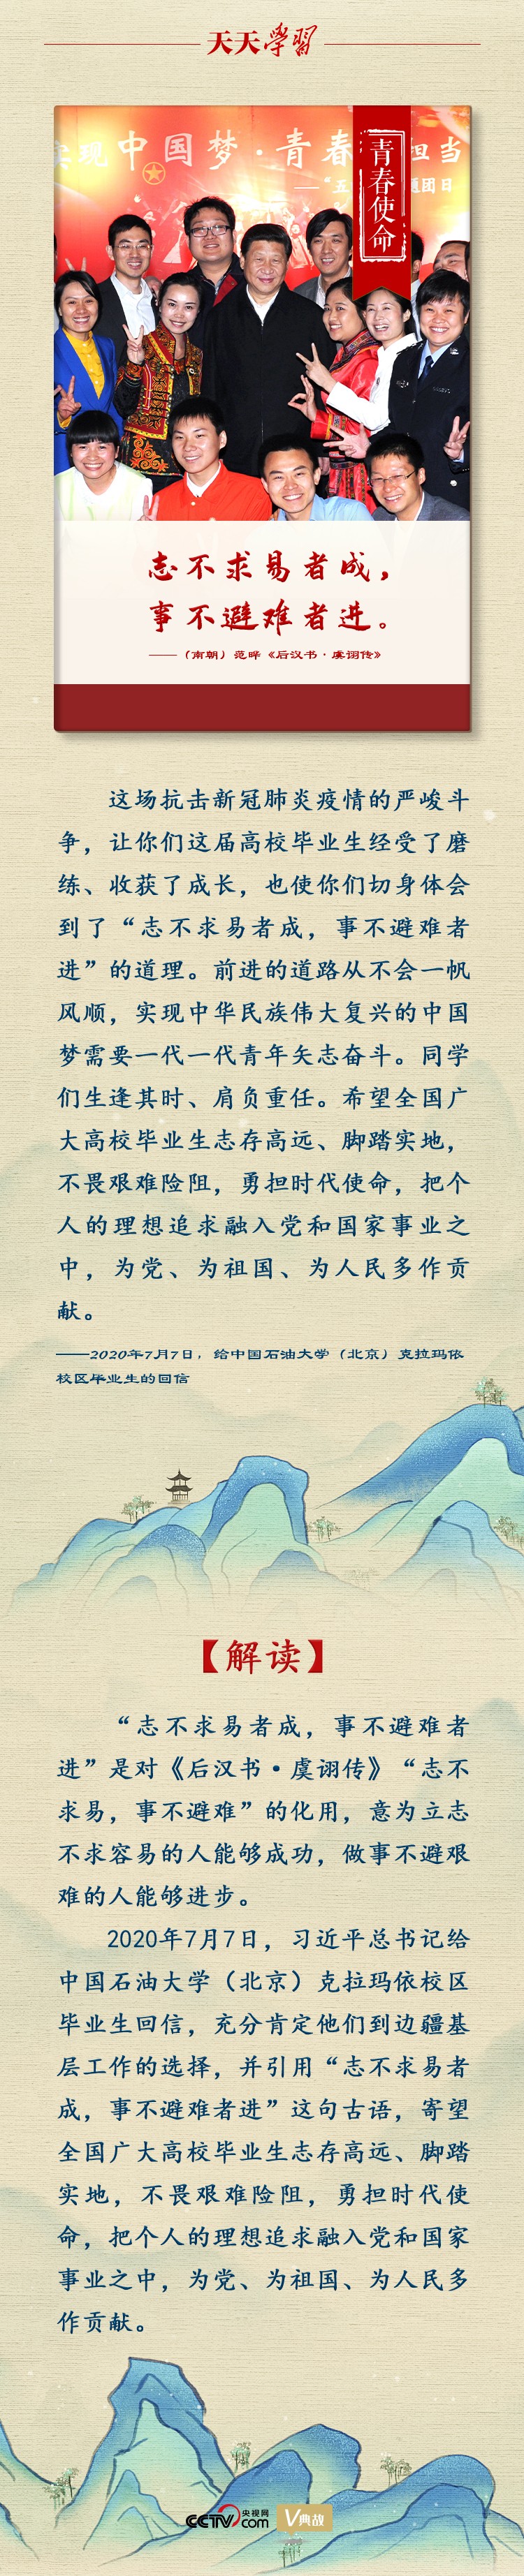 天天學習
实现中国梦·青春
担当
——“五
题团日
青春使命
志不求易者成，
事不避难者进。
——（南朝）范晔《后汉书·虞诩传》
这场抗击新冠肺炎疫情的严峻斗
争，让你们这届高校毕业生经受了磨
练、收获了成长，也使你们切身体会
到了“志不求易者成，事不避难者
进”的道理。前进的道路从不会一帆
风顺，实现中华民族伟大复兴的中国
梦需要一代一代青年矢志奋斗。同学
们生逢其时、肩负重任。希望全国广
大高校毕业生志存高远、脚踏实地，
不畏艰难险阻，勇担时代使命，把个
人的理想追求融入党和国家事业之
中，为党、为祖国、为人民多作贡
献。
——2020年7月7日，给中国石油大学（北京）克拉玛依
校区毕业生的回信
【解读】
“志不求易者成，事不避难者
进”是对《后汉书·虞诩传》“志不
求易，事不避难”的化用，意为立志
不求容易的人能够成功，做事不避艰
难的人能够进步。
2020年7月7日，习近平总书记给
中国石油大学（北京）克拉玛依校区
毕业生回信，充分肯定他们到边疆基
层工作的选择，并引用“志不求易者
成，事不避难者进”这句古语，寄望
全国广大高校毕业生志存高远、脚踏
实地，不畏艰难险阻，勇担时代使
命，把个人的理想追求融入党和国家
事业之中，为党、为祖国、为人民多
作贡献。
CCTV.com 央视网
V典故